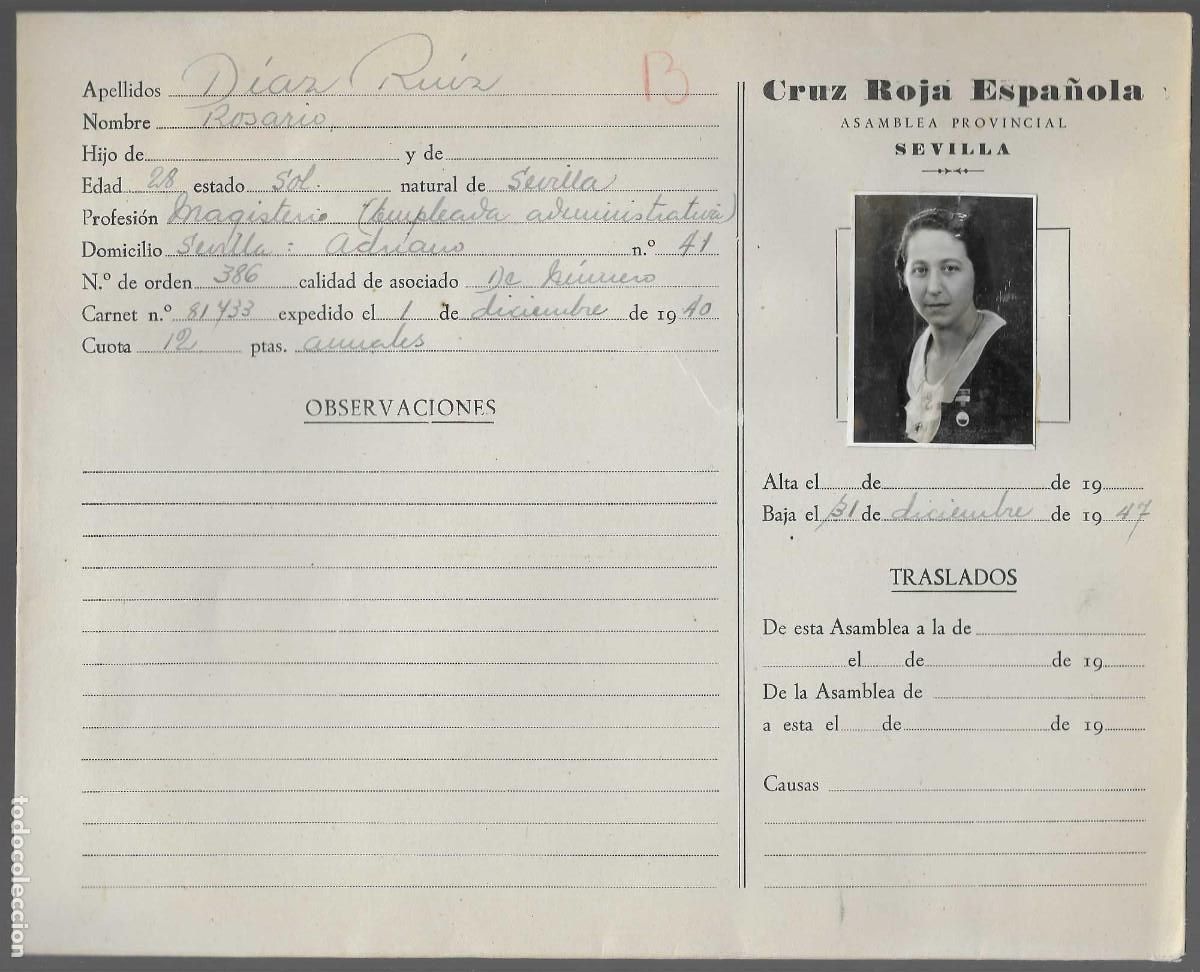 Apellidos Díaz Ruiz B
Nombre Rosario
Hijo de y de
Edad 28 estado Sol. natural de Sevilla
Profesión Magisterio (Empleada administrativa)
Domicilio Sevilla: Adriano n.º 41
N.º de orden 386 calidad de asociado De Número
Carnet n.º 81433 expedido el 1 de diciembre de 1940
Cuota 12 ptas. anuales
OBSERVACIONES
Cruz Roja Española
ASAMBLEA PROVINCIAL
SEVILLA
Alta el de de 19
Baja el 31 de diciembre de 1947
TRASLADOS
De esta Asamblea a la de
el de de 19
De la Asamblea de
a esta el de de 19
Causas
todocoleccion